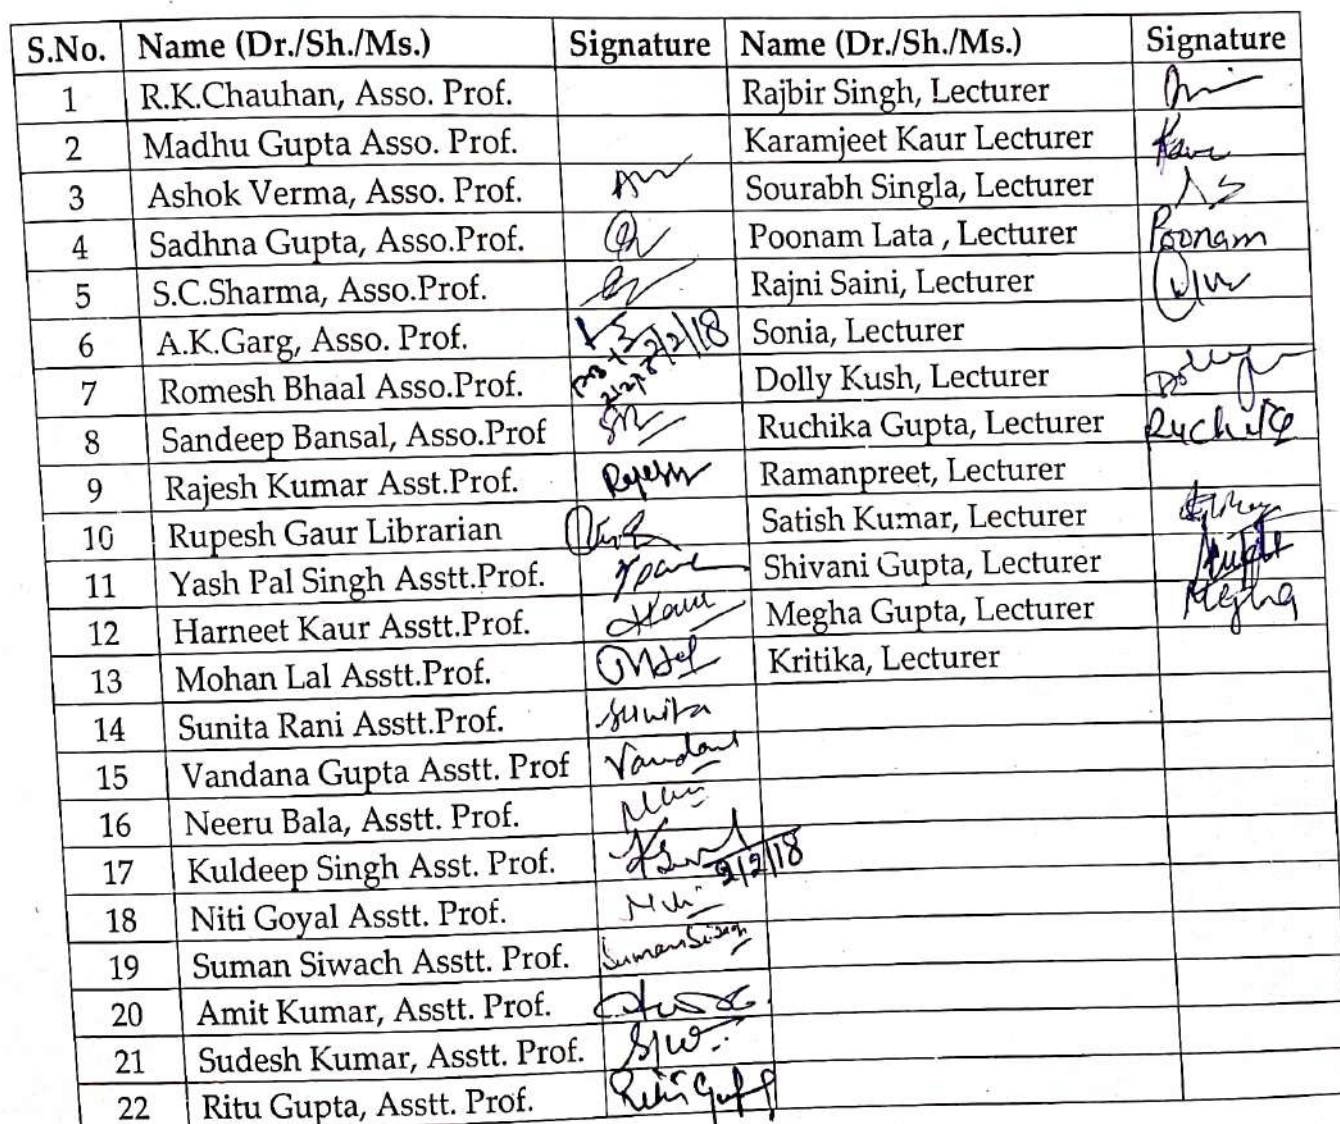 S.No. Name (Dr./Sh./Ms.) Signature Name (Dr./Sh./Ms.) Signature
1 R.K.Chauhan, Asso. Prof. Rajbir Singh, Lecturer
2 Madhu Gupta Asso. Prof. Karamjeet Kaur Lecturer Kaur
3 Ashok Verma, Asso. Prof. Sourabh Singla, Lecturer
4 Sadhna Gupta, Asso.Prof. Poonam Lata , Lecturer Poonam
5 S.C.Sharma, Asso.Prof. Rajni Saini, Lecturer
6 A.K.Garg, Asso. Prof. 2/2/18 Sonia, Lecturer
7 Romesh Bhaal Asso.Prof. Dolly Kush, Lecturer
8 Sandeep Bansal, Asso.Prof Ruchika Gupta, Lecturer Ruchika
9 Rajesh Kumar Asst.Prof. Rajesh Ramanpreet, Lecturer
10 Rupesh Gaur Librarian Satish Kumar, Lecturer
11 Yash Pal Singh Asstt.Prof. Shivani Gupta, Lecturer
12 Harneet Kaur Asstt.Prof. Kaur Megha Gupta, Lecturer Megha
13 Mohan Lal Asstt.Prof. Kritika, Lecturer
14 Sunita Rani Asstt.Prof. Sunita
15 Vandana Gupta Asstt. Prof Vandana
16 Neeru Bala, Asstt. Prof.
17 Kuldeep Singh Asst. Prof. 2/2/18
18 Niti Goyal Asstt. Prof. Niti
19 Suman Siwach Asstt. Prof. Suman Siwach
20 Amit Kumar, Asstt. Prof.
21 Sudesh Kumar, Asstt. Prof.
22 Ritu Gupta, Asstt. Prof. Ritu Gupta